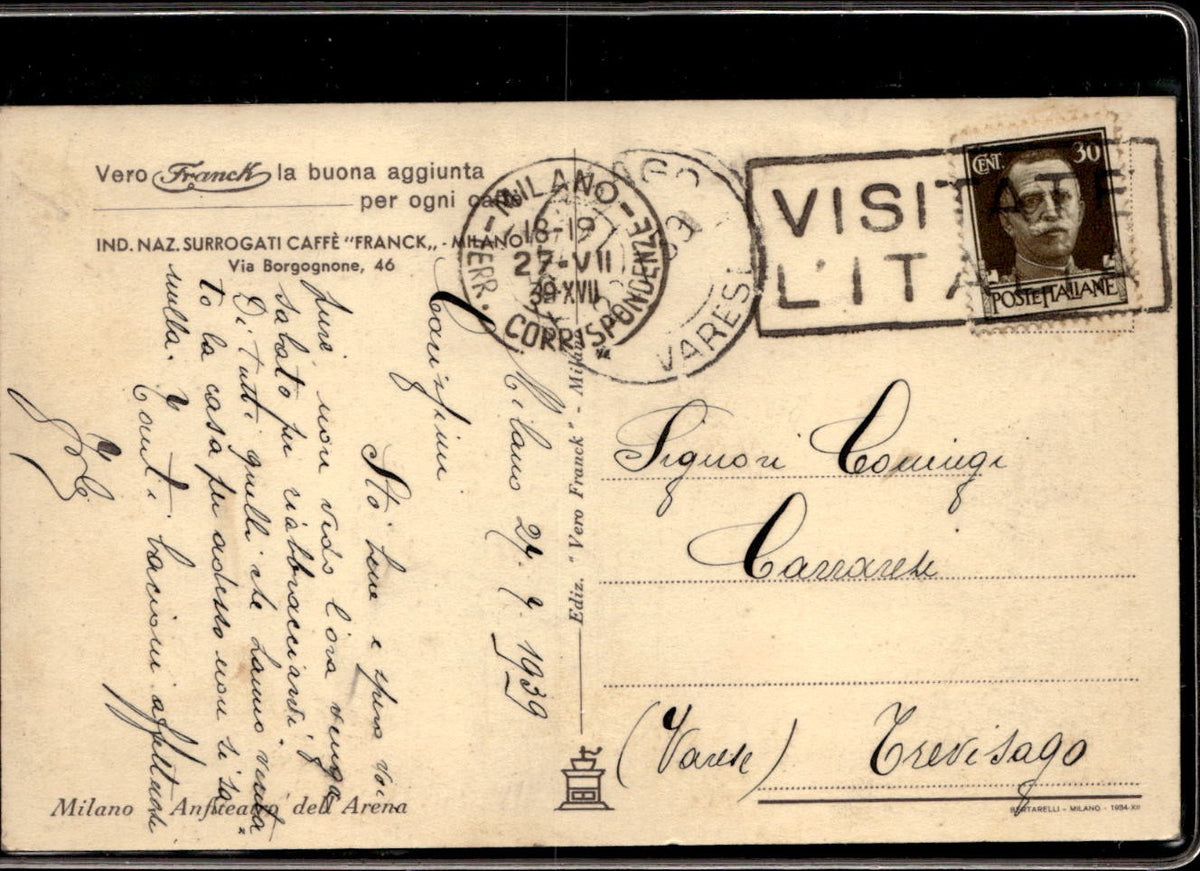 Vero Franck la buona aggiunta
per ogni caffè
IND. NAZ. SURROGATI CAFFÈ "FRANCK„ - MILANO
Via Borgognone, 46
MILANO
18-19
27-VII
39-XVII
FERR. CORRISPONDENZE
VARESE
VISITATE
L'ITALIA
CENT 30
POSTE ITALIANE
Milano 27.7.1939
Carissimi
Sto bene e spero voi
pure non vedo l'ora venga
sabato per riabbracciarvi.
Di tutti quelli che hanno venta
to la casa per adesso non si sa
nulla.
Tanti bacioni affettuosi
Ediz. "Vero Franck" - Milano
Signori Comingi
Carrarese
(Varese) Trevisago
Milano Anfiteatro dell'Arena
BERTARELLI - MILANO - 1934-XII